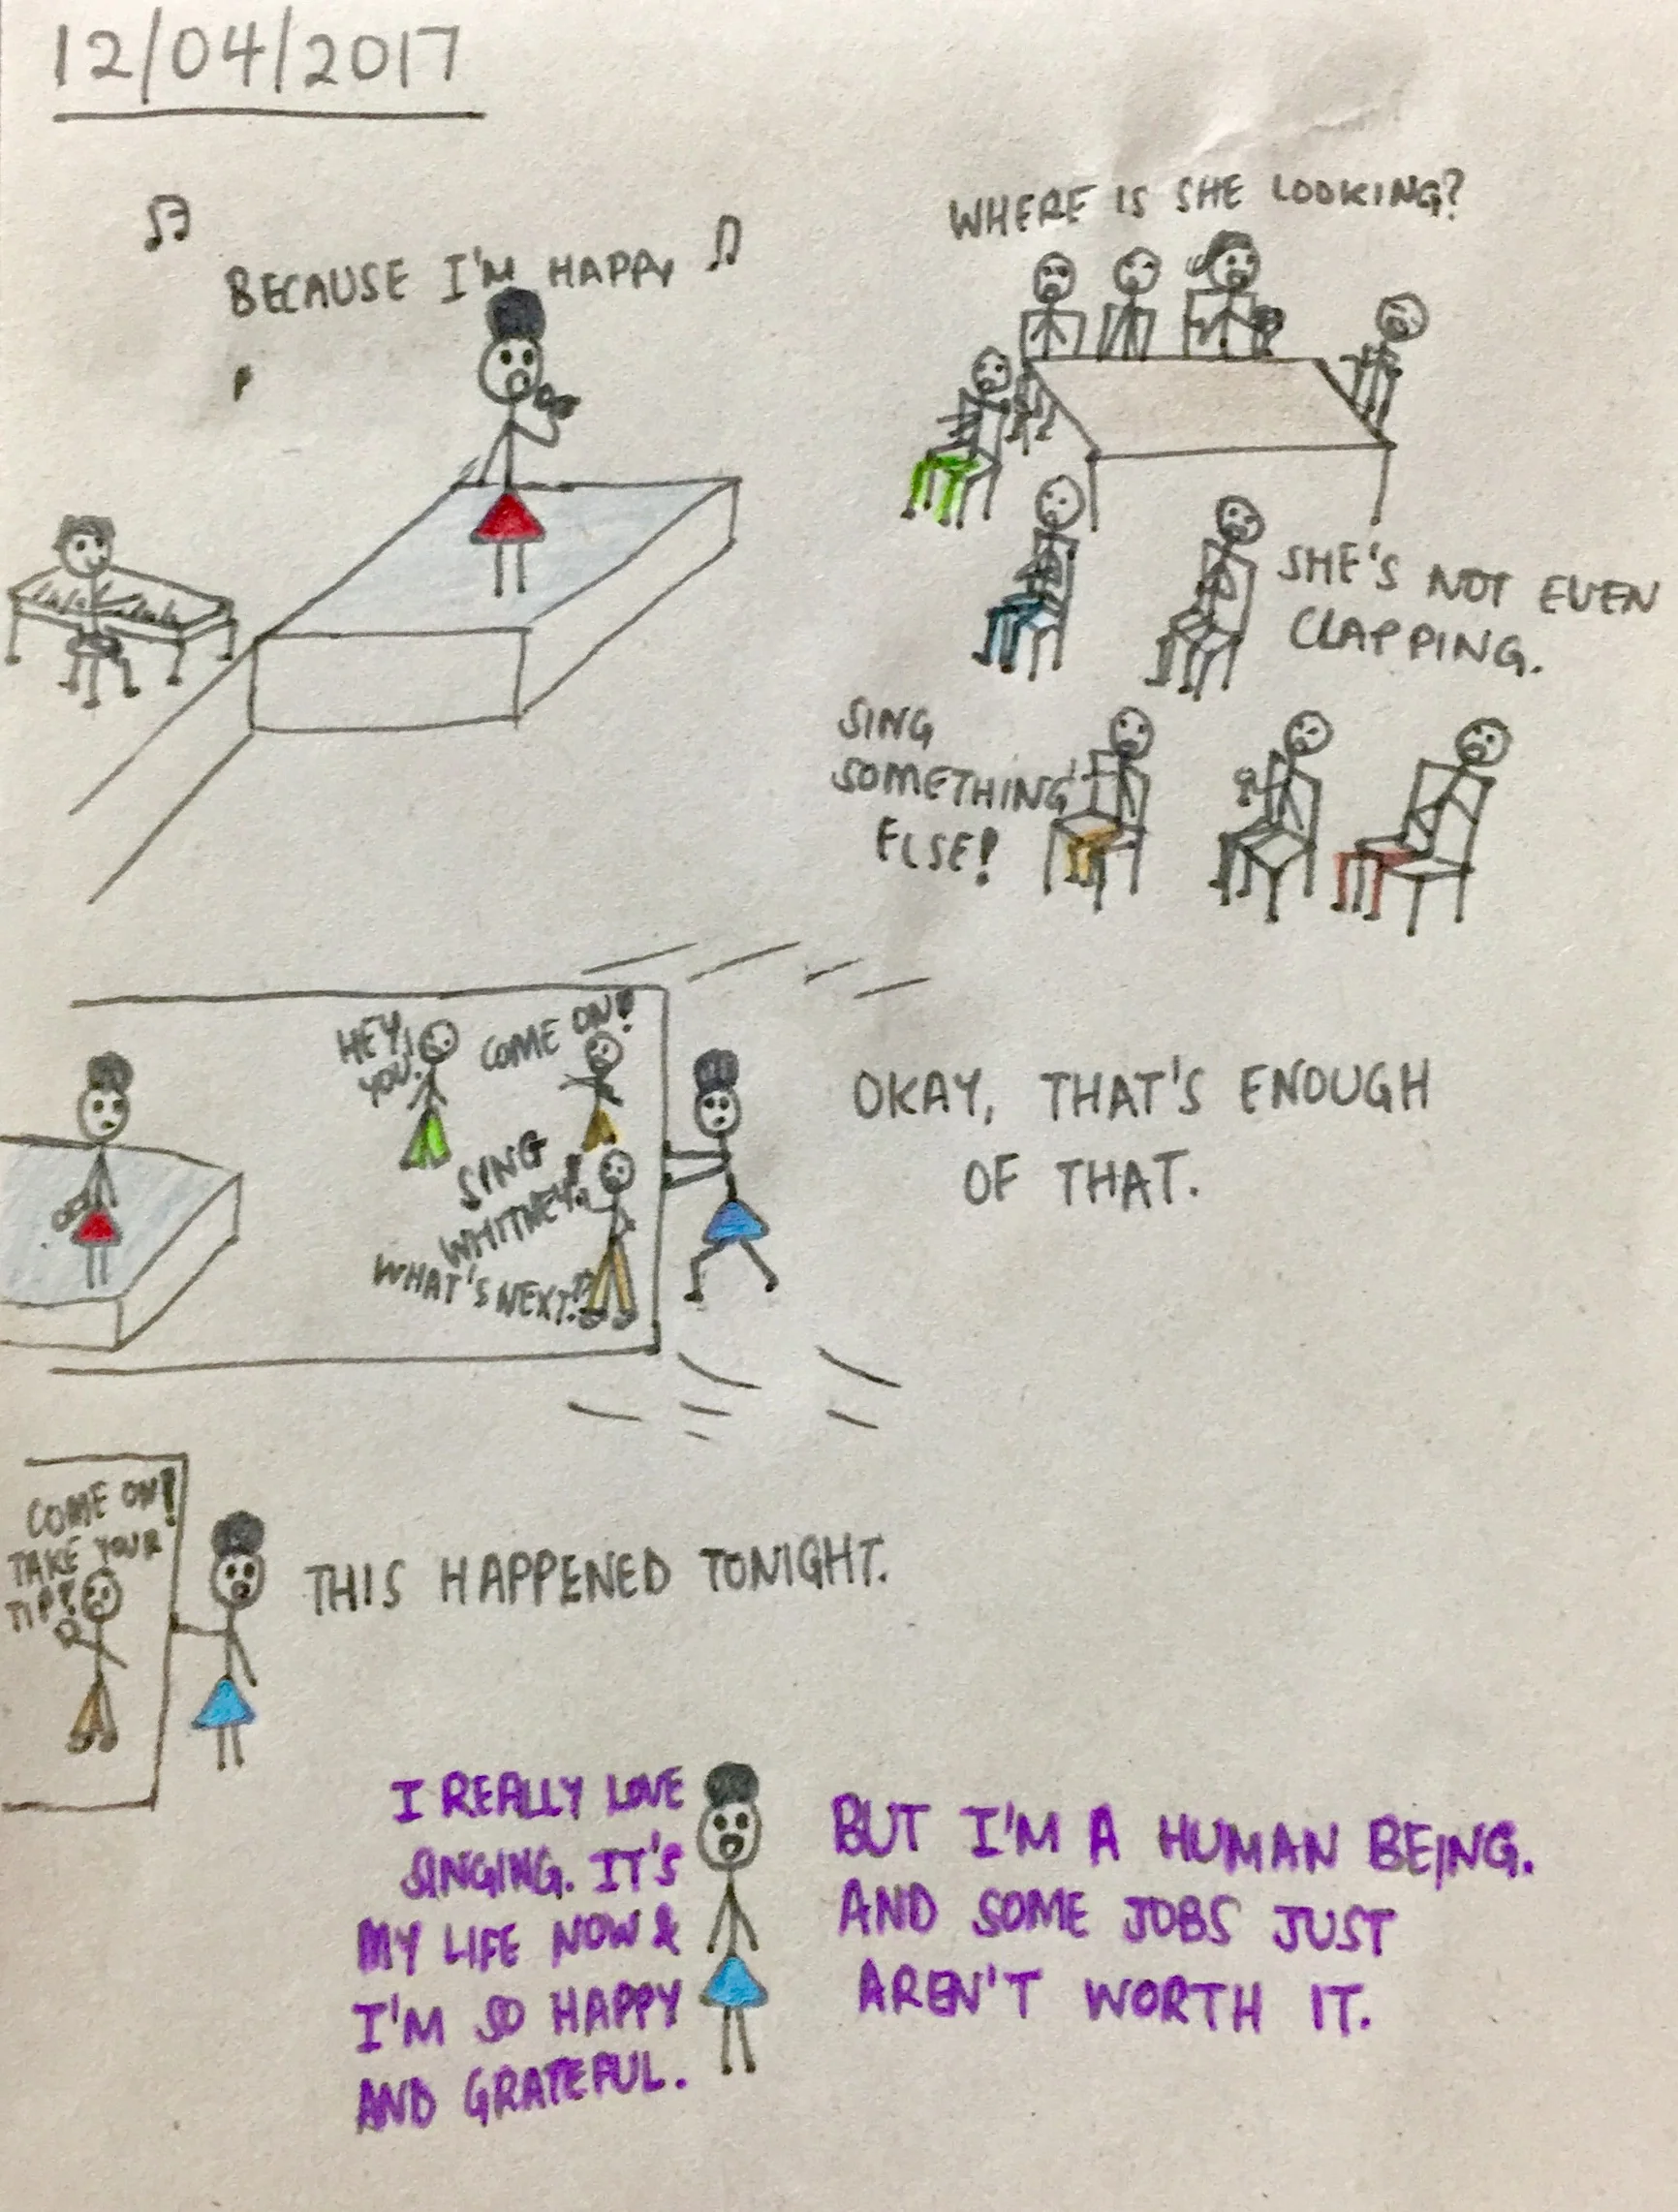 12/04/2017
BECAUSE I'M HAPPY
WHERE IS SHE LOOKING?
SHE'S NOT EVEN
CLAPPING.
SING
SOMETHING
ELSE!
HEY!
YOU.
COME ON!
SING
WHITNEY!
WHAT'S NEXT!?
OKAY, THAT'S ENOUGH
OF THAT.
COME ON!
TAKE YOUR
TIP!
THIS HAPPENED TONIGHT.
I REALLY LOVE
SINGING. IT'S
MY LIFE NOW &
I'M SO HAPPY
AND GRATEFUL.
BUT I'M A HUMAN BEING.
AND SOME JOBS JUST
AREN'T WORTH IT.